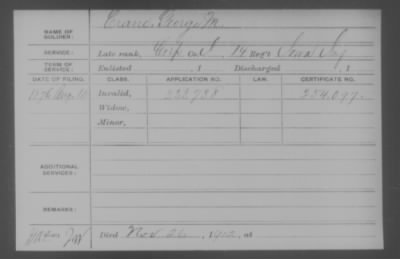 NAME OF SOLDIER: Crane, George M.
SERVICE: Late rank, Corp Co. I, 14 Reg't Iowa Inf
TERM OF SERVICE: Enlisted , 1 Discharged , 1
DATE OF FILING. CLASS. APPLICATION NO. LAW. CERTIFICATE NO.
Invalid, 354,097.
Widow,
Minor,
ADDITIONAL SERVICES:
REMARKS:
Died Nov 26, 1912, at